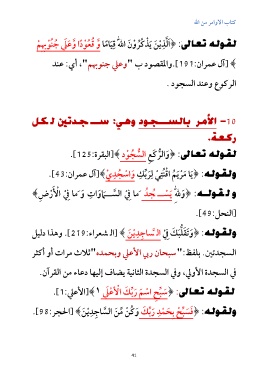 كتاب الأوامر من الله
لقوله تعالى: ﴿الَّذِيْنَ يَذْكُرُوْنَ اللّٰهَ قِيَامًا وَّ قُعُوْدًا وَّعَلٰى جُنُوْبِهِمْ
﴾ [آل عمران:191].والمقصود ب "وعلي جنوبهم"، أي: عند
الركوع وعند السجود .
10- الأمر بالسجود وهي: سجدتين لكل
ركعة.
لقوله تعالى: ﴿وَالرُّكَّعِ السُّجُوْدِ ﴾[البقرة:125].
ولقوله: ﴿يَا مَرْيَمُ اقْنُتِيْ لِرَبِّكِ وَاسْجُدِيْ﴾[آل عمران:43].
ولقوله: ﴿وَلِلّٰهِ يَسْجُدُ مَا فِي السَّمَاوَاتِ وَمَا فِي الْأَرْضِ﴾
[النحل:49].
ولقوله: ﴿وَتَقَلُّبَكَ فِي السَّاجِدِيْنَ﴾ [الشعراء:219]. وهذا دليل
السجدتين. بلفظ: "سبحان ربي الأعلي وبحمده" ثلاث مرات أو أكثر
في السجدة الأولي، وفي السجدة الثانية يضاف إليها دعاء من القرآن.
لقوله تعالى: ﴿سَبِّحِ اسْمَ رَبِّكَ الْأَعْلَى ١ ﴾[الأعلي:1].
ولقوله: ﴿فَسَبِّحْ بِحَمْدِ رَبِّكَ وَكُنْ مِّنَ السَّاجِدِيْنَ﴾ [الحجر:98].
41